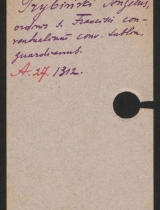 Trybiński Angelus,
ordinis S. Francisci con-
ventualium conv. Lublin.
guardianus.
A. 27. 1312.